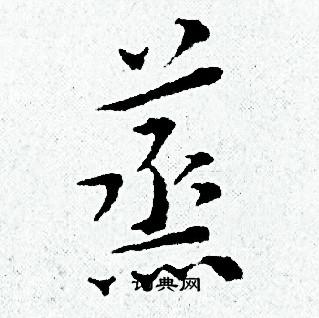 蒸
词典网